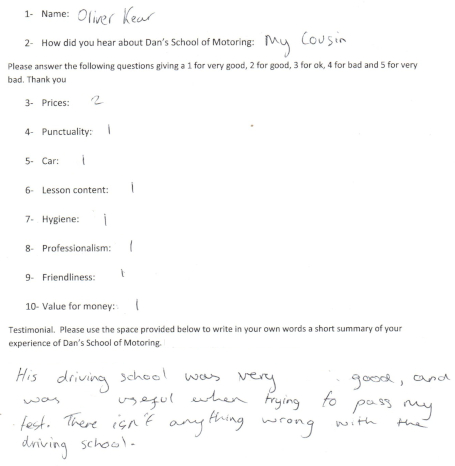 1- Name: Oliver Kear
2- How did you hear about Dan's School of Motoring: My Cousin
Please answer the following questions giving a 1 for very good, 2 for good, 3 for ok, 4 for bad and 5 for very
bad. Thank you
3- Prices: 2
4- Punctuality: 1
5- Car: 1
6- Lesson content: 1
7- Hygiene: 1
8- Professionalism: 1
9- Friendliness: 1
10- Value for money: 1
Testimonial. Please use the space provided below to write in your own words a short summary of your
experience of Dan's School of Motoring.
His driving school was very good, and
was useful when trying to pass my
test. There isn't anything wrong with the
driving school.